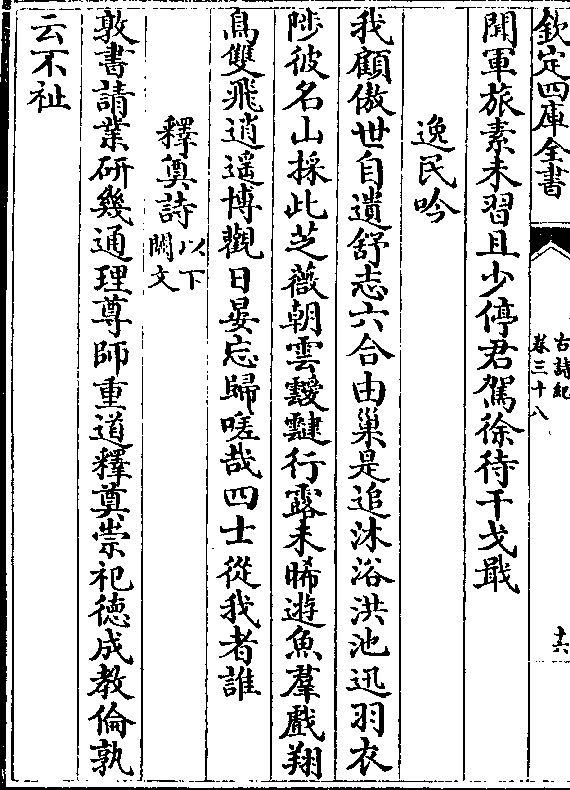 欽定四庫全書
古詩紀
卷三十八
十六
聞軍旅素未習且少停君駕徐待干戈戢
逸民吟
我顧傲世自遺舒志六合由巢是追沐浴洪池迅羽衣
陟彼名山採此芝薇朝雲靉靆行露未晞遊魚羣戲翔
鳥雙飛逍遙博觀日晏忘歸嗟哉四士從我者誰
釋奠詩以下闕文
敦書請業研幾通理尊師重道釋奠崇祀德成教倫孰
云不祉